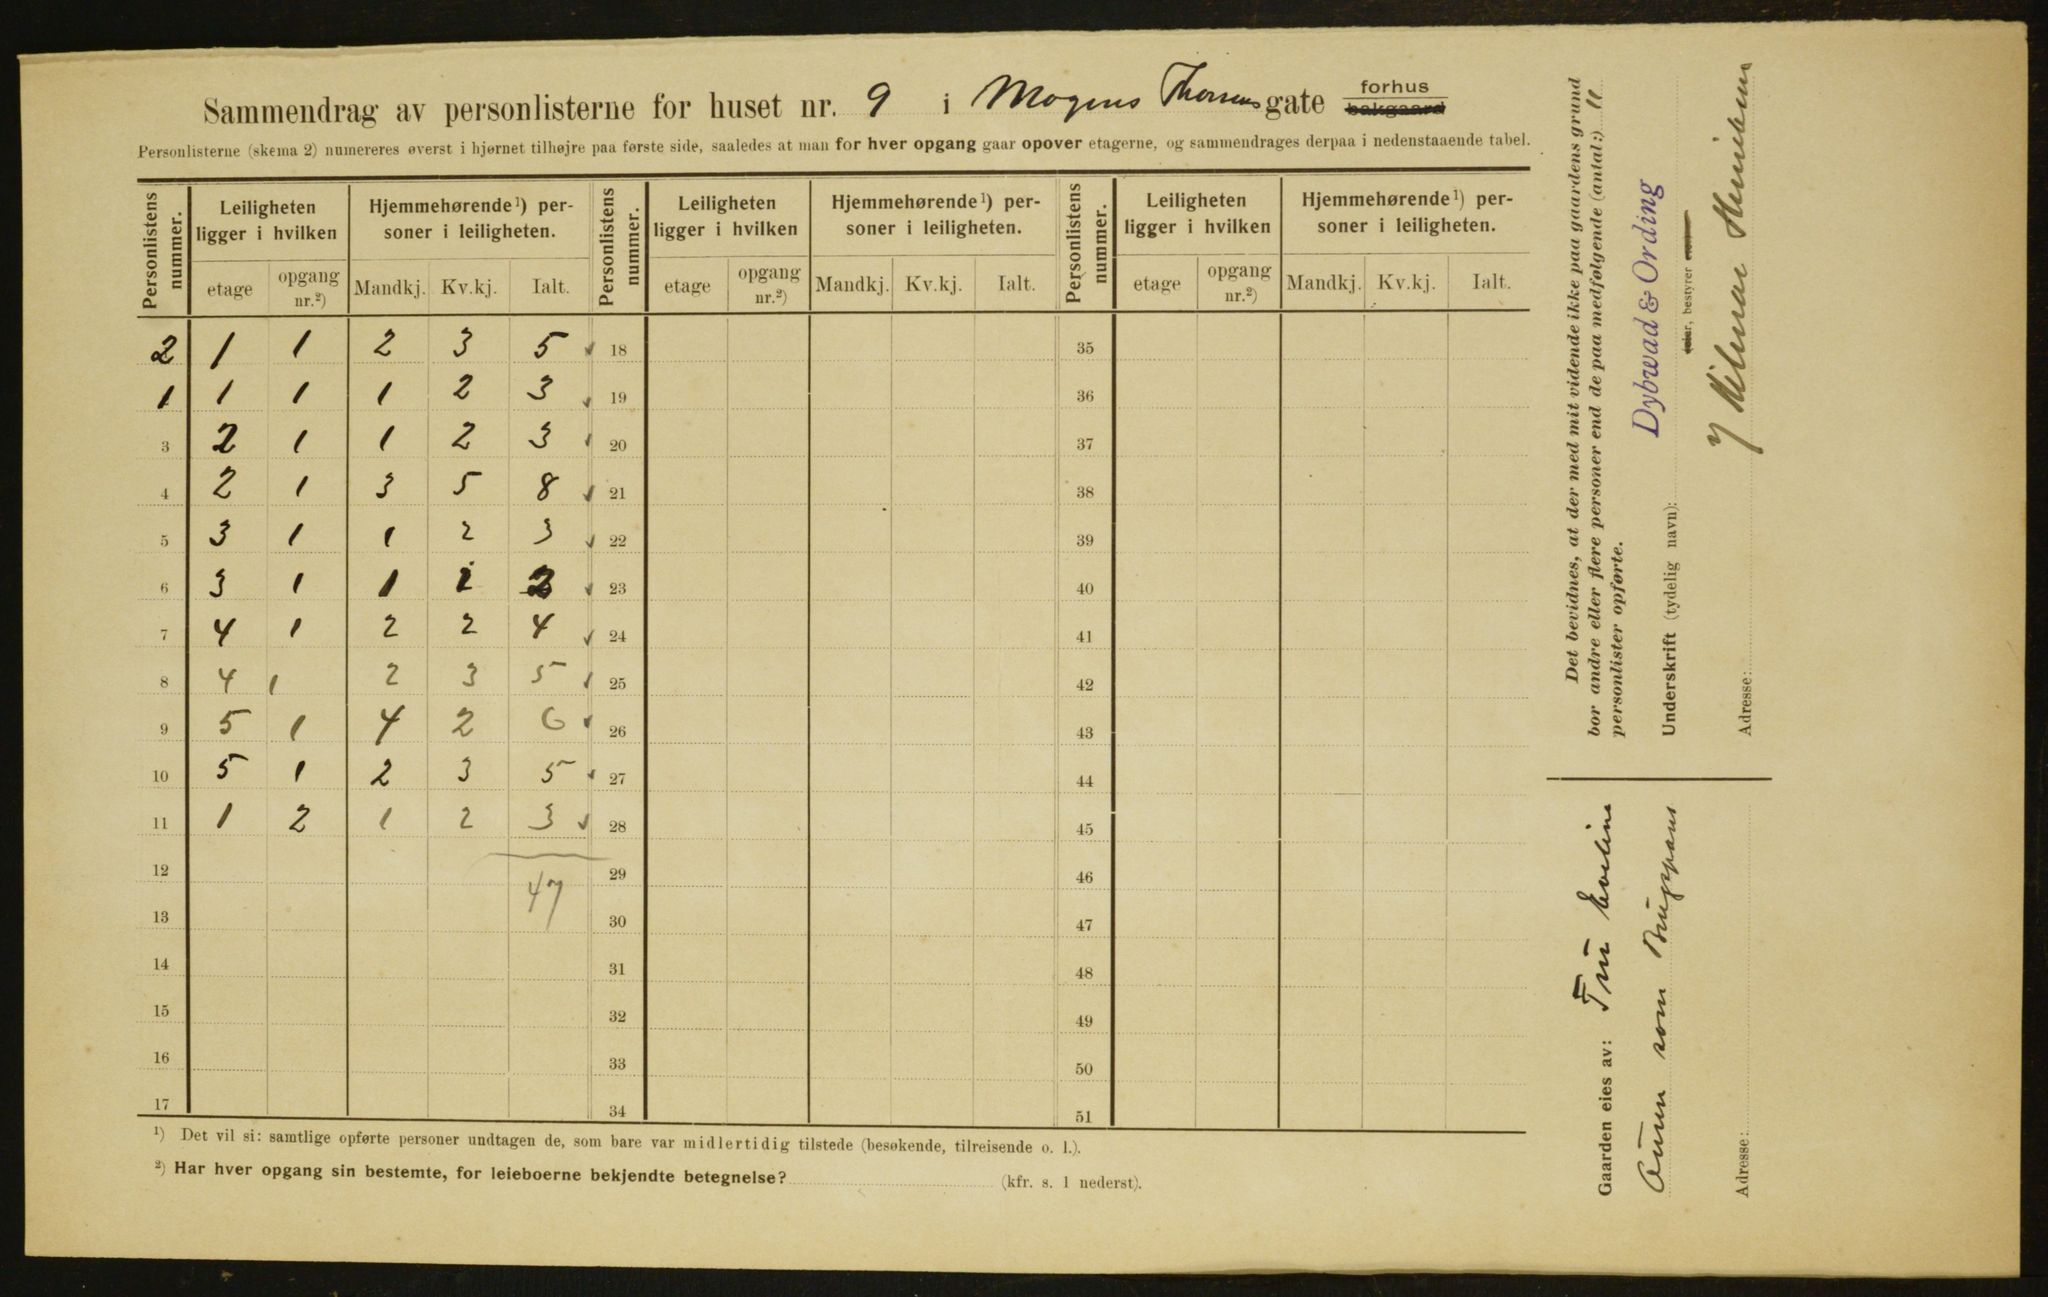 Sammendrag av personlisterne for huset nr. 9 i Mogens Thorsens gate forhus bakgaard
Personlisterne (skema 2) numereres øverst i hjørnet tilhøjre paa første side, saaledes at man for hver opgang gaar opover etagerne, og sammendrages derpaa i nedenstaaende tabel.
Personlistens nummer. Leiligheten ligger i hvilken Hjemmehørende ¹) personer i leiligheten. Personlistens nummer. Leiligheten ligger i hvilken Hjemmehørende ¹) personer i leiligheten. Personlistens nummer. Leiligheten ligger i hvilken Hjemmehørende ¹) personer i leiligheten.
etage opgang nr.²) Mandkj. Kv.kj. Ialt. etage opgang nr.²) Mandkj. Kv.kj. Ialt. etage opgang nr.²) Mandkj. Kv.kj. Ialt.
2 1 1 2 3 5 18 35
1 1 1 1 2 3 19 36
3 2 1 1 2 3 20 37
4 2 1 3 5 8 21 38
5 3 1 1 2 3 22 39
6 3 1 1 1 2 23 40
7 4 1 2 2 4 24 41
8 4 1 2 3 5 25 42
9 5 1 4 2 6 26 43
10 5 1 2 3 5 27 44
11 1 2 1 2 3 28 45
12 47 29 46
13 30 47
14 31 48
15 32 49
16 33 50
17 34 51
¹) Det vil si: samtlige opførte personer undtagen de, som bare var midlertidig tilstede (besøkende, tilreisende o. l.).
²) Har hver opgang sin bestemte, for leieboerne bekjendte betegnelse? (kfr. s. 1 nederst).
Det bevidnes, at der med mit vidende ikke paa gaardens grund
bor andre eller flere personer end de paa medfølgende (antal:) 11
personlister opførte.
Dybwad & Ording
Underskrift (tydelig navn): eier, bestyrer
Adresse:
Gaarden eies av: Fru
som
Adresse: